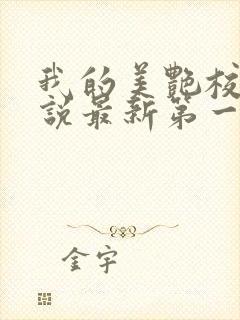 我的美艷校
說最新第一
金宇